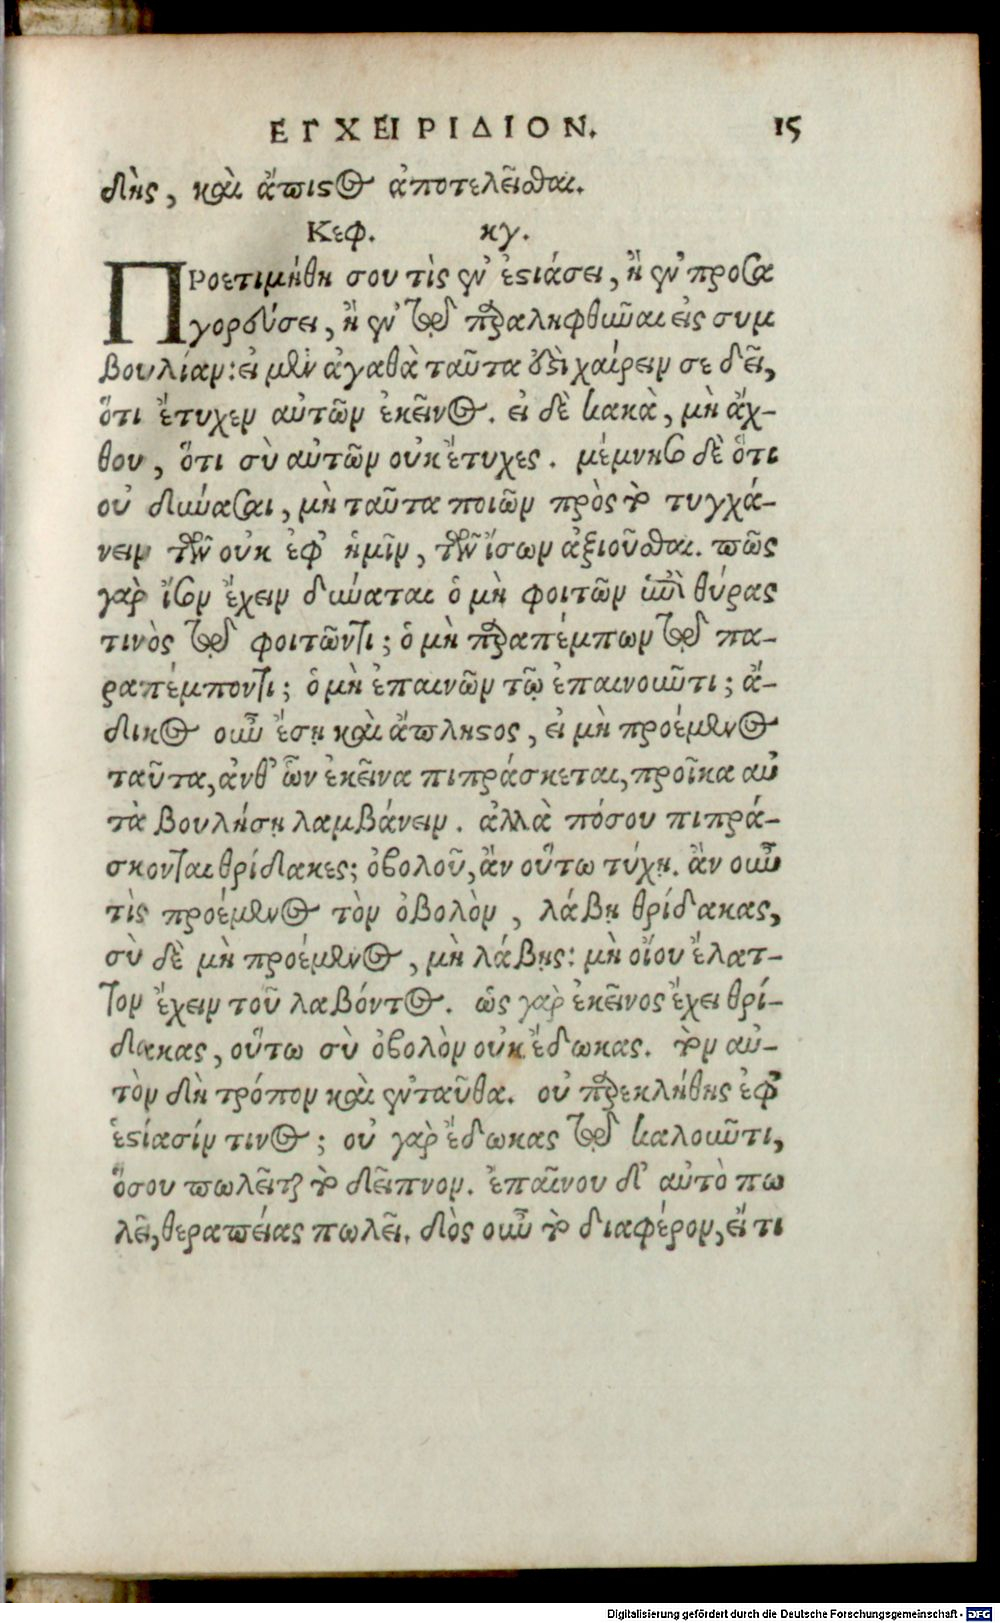 ΕΓΧΕΙΡΙΔΙΟΝ. 15
δὴς, καὶ ἄπιστος ἀποτελεῖσθαι.
Κεφ. κγ.
ΠΡοετιμήθη σου τὶς ἐν ἑστιάσει, ἢ ἐν προσα
γορεύσει, ἢ ἐν τῷ παραληφθῆναι εἰς συμ
βουλίαν: εἰ μὲν ἀγαθὰ ταῦτα ὅτι χαίρειν σε δεῖ,
ὅτι ἔτυχεν αὐτῶν ἐκεῖνος. εἰ δὲ κακὰ, μὴ ἄχ-
θου, ὅτι σὺ αὐτῶν οὐκ ἔτυχες. μέμνησο δὲ ὅτι
οὐ δύνασαι, μὴ ταῦτα ποιῶν πρὸς τὸ τυγχά-
νειν τῶν οὐκ ἐφ’ ἡμῖν, τῶν ἴσων ἀξιοῦσθαι. πῶς
γὰρ ἴσον ἔχειν δύναται ὁ μὴ φοιτῶν ἐπὶ θύρας
τινὸς τῷ φοιτῶντι; ὁ μὴ παραπέμπων τῷ πα-
ραπέμποντι; ὁ μὴ ἐπαινῶν τῷ ἐπαινοῦντι; ἄ-
δικος οὖν ἔσῃ καὶ ἄπληστος, εἰ μὴ προέμενος
ταῦτα, ἀνθ’ ὧν ἐκεῖνα πιπράσκεται, προῖκα αὐ
τὰ βουλήσῃ λαμβάνειν. ἀλλὰ πόσου πιπρά-
σκονται θρίδακες; ὀβολοῦ, ἂν οὕτω τύχῃ. ἂν οὖν
τὶς προέμενος τὸν ὀβολὸν, λάβῃ θρίδακας,
σὺ δὲ μὴ προέμενος, μὴ λάβῃς: μὴ οἴου ἔλατ-
τον ἔχειν τοῦ λαβόντος. ὡς γὰρ ἐκεῖνος ἔχει θρί-
δακας, οὕτω σὺ ὀβολὸν οὐκ ἔδωκας. τὸν αὐ-
τὸν δὴ τρόπον καὶ ἐνταῦθα. οὐ παρεκλήθης ἐφ’
ἑστίασίν τινος; οὐ γὰρ ἔδωκας τῷ καλοῦντι,
ὅσου πωλεῖται τὸ δεῖπνον. ἐπαίνου δ’ αὐτὸ πω
λεῖ, θεραπείας πωλεῖ. δὸς οὖν τὸ διαφέρον, εἴ τι
Digitalisierung gefördert durch die Deutsche Forschungsgemeinschaft - DFG